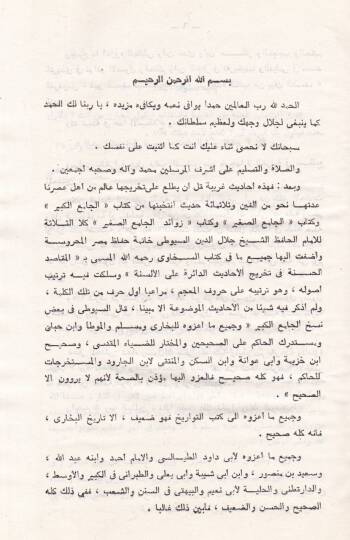 بسم الله الرحمن الرحيم
الحمد لله رب العالمين حمدا يوافى نعمه ويكافىء مزيده ، يا ربنا لك الحمد
كما ينبغى لجلال وجهك ولعظيم سلطانك .
سبحانك لا نحصى ثناء عليك أنت كما أثنيت على نفسك .
والصلاة والتسليم على أشرف المرسلين محمد وآله وصحبه أجمعين .
وبعد : فهذه أحاديث غريبة قل أن يطلع على تخريجها عالم من أهل عصرنا
عدتها نحو من ألفين وثلاثمائة حديث انتخبتها من كتاب « الجامع الكبير »
وكتاب « الجامع الصغير » وكتاب « زوائد الجامع الصغير » كلا الثلاثة
للامام الحافظ الشيخ جلال الدين السيوطى خاتمة حفاظ مصر المحروسة
وأضفت اليها جميع ما فى كتاب السخاوى رحمه الله المسمى بـ « المقاصد
الحسنة فى تخريج الأحاديث الدائرة على الألسنة » وسلكت فيه ترتيب
أصوله ، وهو ترتيبه على حروف المعجم ، مراعيا أول حرف من تلك الكلمة ،
ولم أذكر فيه شيئا من الأحاديث الموضوعة الا مبينا ، قال السيوطى فى بعض
نسخ الجامع الكبير « وجميع ما أعزوه للبخارى ومسلم والموطا وابن حبان
ومستدرك الحاكم على الصحيحين والمختار للضياء المقدسى ، وصحيح
ابن خزيمة وأبى عوانة وابن السكن والمنتقى لابن الجارود والمستخرجات
للحاكم ، فهو كله صحيح فالعزو اليها مؤذن بالصحة لأنهم لا يروون الا
الصحيح » .
وجميع ما أعزوه الى كتب التواريخ فهو ضعيف ، الا تاريخ البخارى ،
فانه كله صحيح .
وجميع ما أعزوه لأبى داود الطيالسى والامام أحمد وابنه عبد الله ،
وسعيد بن منصور ، وابن أبى شيبة وأبى يعلى والطبرانى فى الكبير والأوسط ،
والدارقطنى والحلية لأبى نعيم والبيهقى فى السنن والشعب ، ففى ذلك كله
الصحيح والحسن والضعيف ، فأبين ذلك غالبا .